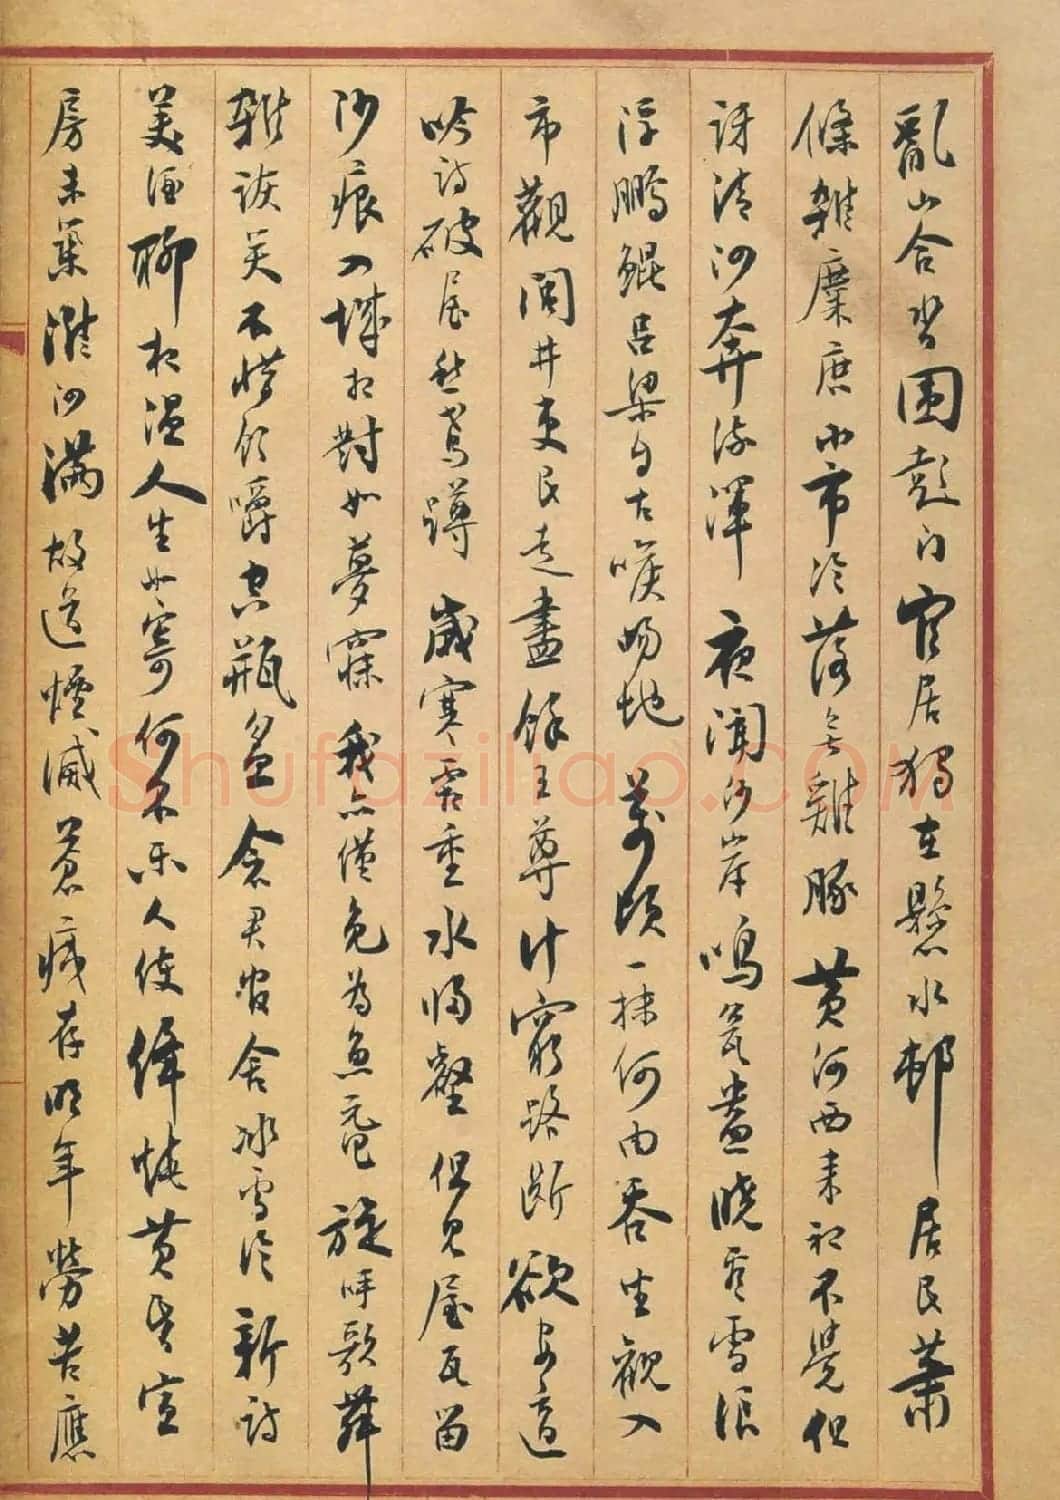 亂山合沓围彭门官居獨在懸水邨居民蕭
條雜麋鹿小市冷落無雞豚黄河西来初不覺但
訝清泗奔流渾夜聞沙岸鳴瓮盎曉看雪浪
浮鵬鯤呂梁自古喉吻地萬頃一抹何由吞坐觀入
市觀閭井吏民走盡餘王尊計窮路斷欲安適
吟詩破屋愁鳶蹲歲寒霜重水歸壑但見屋瓦留
沙痕入城相對如夢寐我亦僅免為魚黿旋呼歌舞
雜詼笑不惜飲嚼空瓶盆念君官舍冰雪冷新詩
美酒聊相温人生如寄何不乐任使絳蜡燒黄昏宣
房未築淮泗满故道煙滅蒼痍存明年勞苦應
Shufaziliao.com